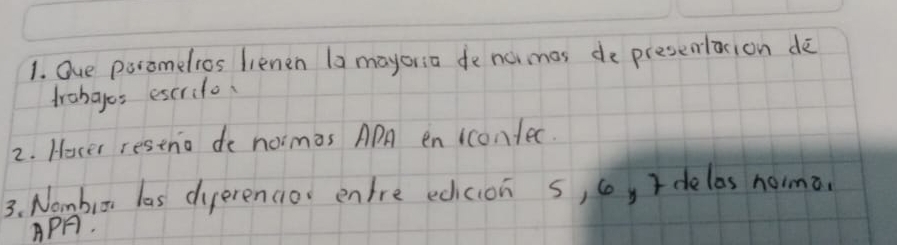 1. Que parametros tienen la mayoria de normas de presentacion de
trabajos escrito.
2. Hacer reseña de normas APA en icontec.
3. Nombrar las diferencias entre edición 5, 6 y 7 de las norma.
APA.